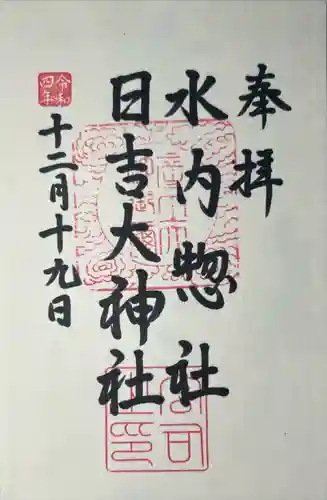 奉拝
水内惣社
日吉大神社
令和四年
十二月十九日